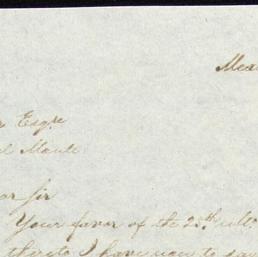 Mea
r Esqre
l Maule
ar Sir
Your favor of the 25th ult.
thereto I have now to say